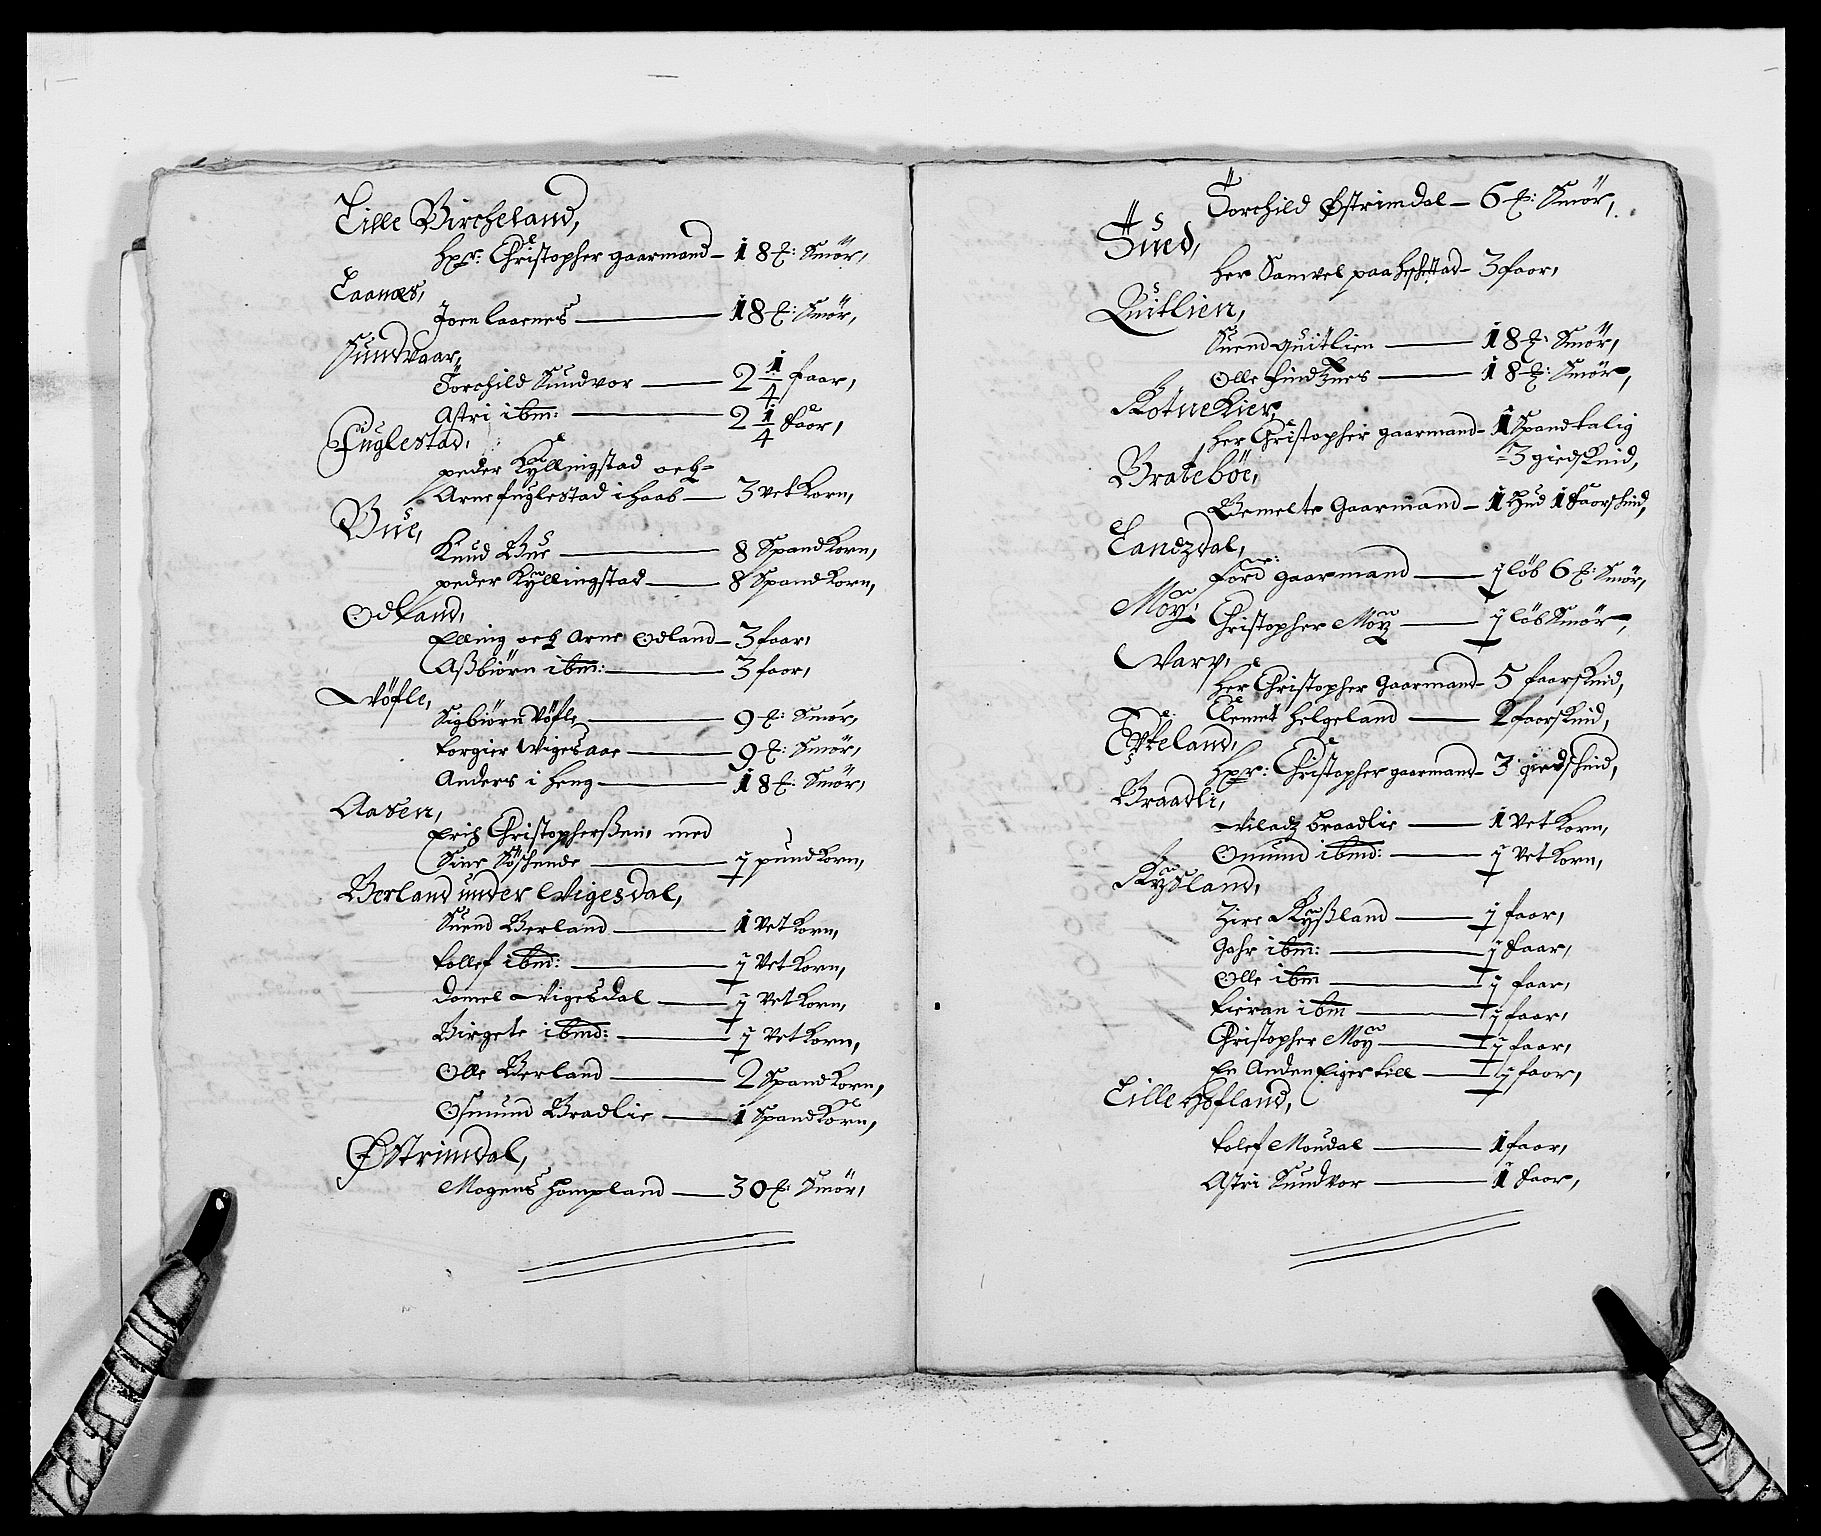 Lille Bircheland,
Hr: Christopher gaarmand – 18 ℔: Smör,
Laanes,
Joen laarnes – 18 ℔: Smör,
Sundvaar,
Torchild Sundvor – 2 1/4 faar,
Astri ibm: – 2 1/4 faar,
Fuglestad,
peder Kyllingstad och
Arne fuglestad i haab – 3 vet Korn,
Bue,
Knud Bue – 8 Spand Korn,
peder Kyllingstad – 8 Spand Korn,
Odland,
Elling och Arne Odland – 3 faar,
Aßbiörn ibm: – 3 faar,
Vöfle,
Sigbiörn Vöfle – 9 ℔: Smör,
torgier Wigesaae – 9 ℔: Smör,
Anders i heng – 18 ℔: Smör,
Aasen,
Erich Christopherßen, med
Sine Söschende – 1/2 pund Korn,
Berland under Wigesdal,
Suend Berland – 1 Vet Korn,
tollef ibm: – 1/2 Vet Korn,
Daniel Vigesdal – 1/2 Vet Korn,
Birgete ibmd: – 1/2 Vet Korn,
Olle Berland – 2 Spand Korn,
Osmund Bradlie – 1 Spand Korn,
Østrimdal,
Mogens hompland – 30 ℔: Smör,
Torchild Østrimdal – 6 ℔: Smör,
Tued,
her Samvel paa heschestad – 3 faar,
Quitlien,
Suend quitlien – 18 ℔: Smör,
Olle findznes – 18 ℔: Smör,
Rotnekier,
her Christopher gaarmand – 1 Spand talig
3 giedskind,
Brateböe,
Bemelte Gaarmand – 1 Hud 1 faarskind,
Landzdal,
Ford gaarmand – 1/2 löb 6 ℔: Smör,
Moy,
Christopher Moy – 1/2 löb Smör,
Varp,
her Christopher Gaarmand – 5 faarskind,
Clemet helgeland – 2 faarskind,
Eykeland,
Hr: Christopher gaarmand – 3 giedskind,
Braadli,
Viladz braadlie – 1 Vet Korn,
Omund ibmd: – 1/2 Vet Korn,
Rysland,
Zire Ryßland – 1/2 faar,
Gahr ibm: – 1/2 faar,
Olle ibm – 1/2 faar,
kieran ibm – 1/2 faar,
Christopher Moy – 1/2 faar,
En Anden Eiger till – 1/2 faar,
Lille Hofland,
tolef Moudal – 1 faar,
Astri Sundvor – 1 faar,